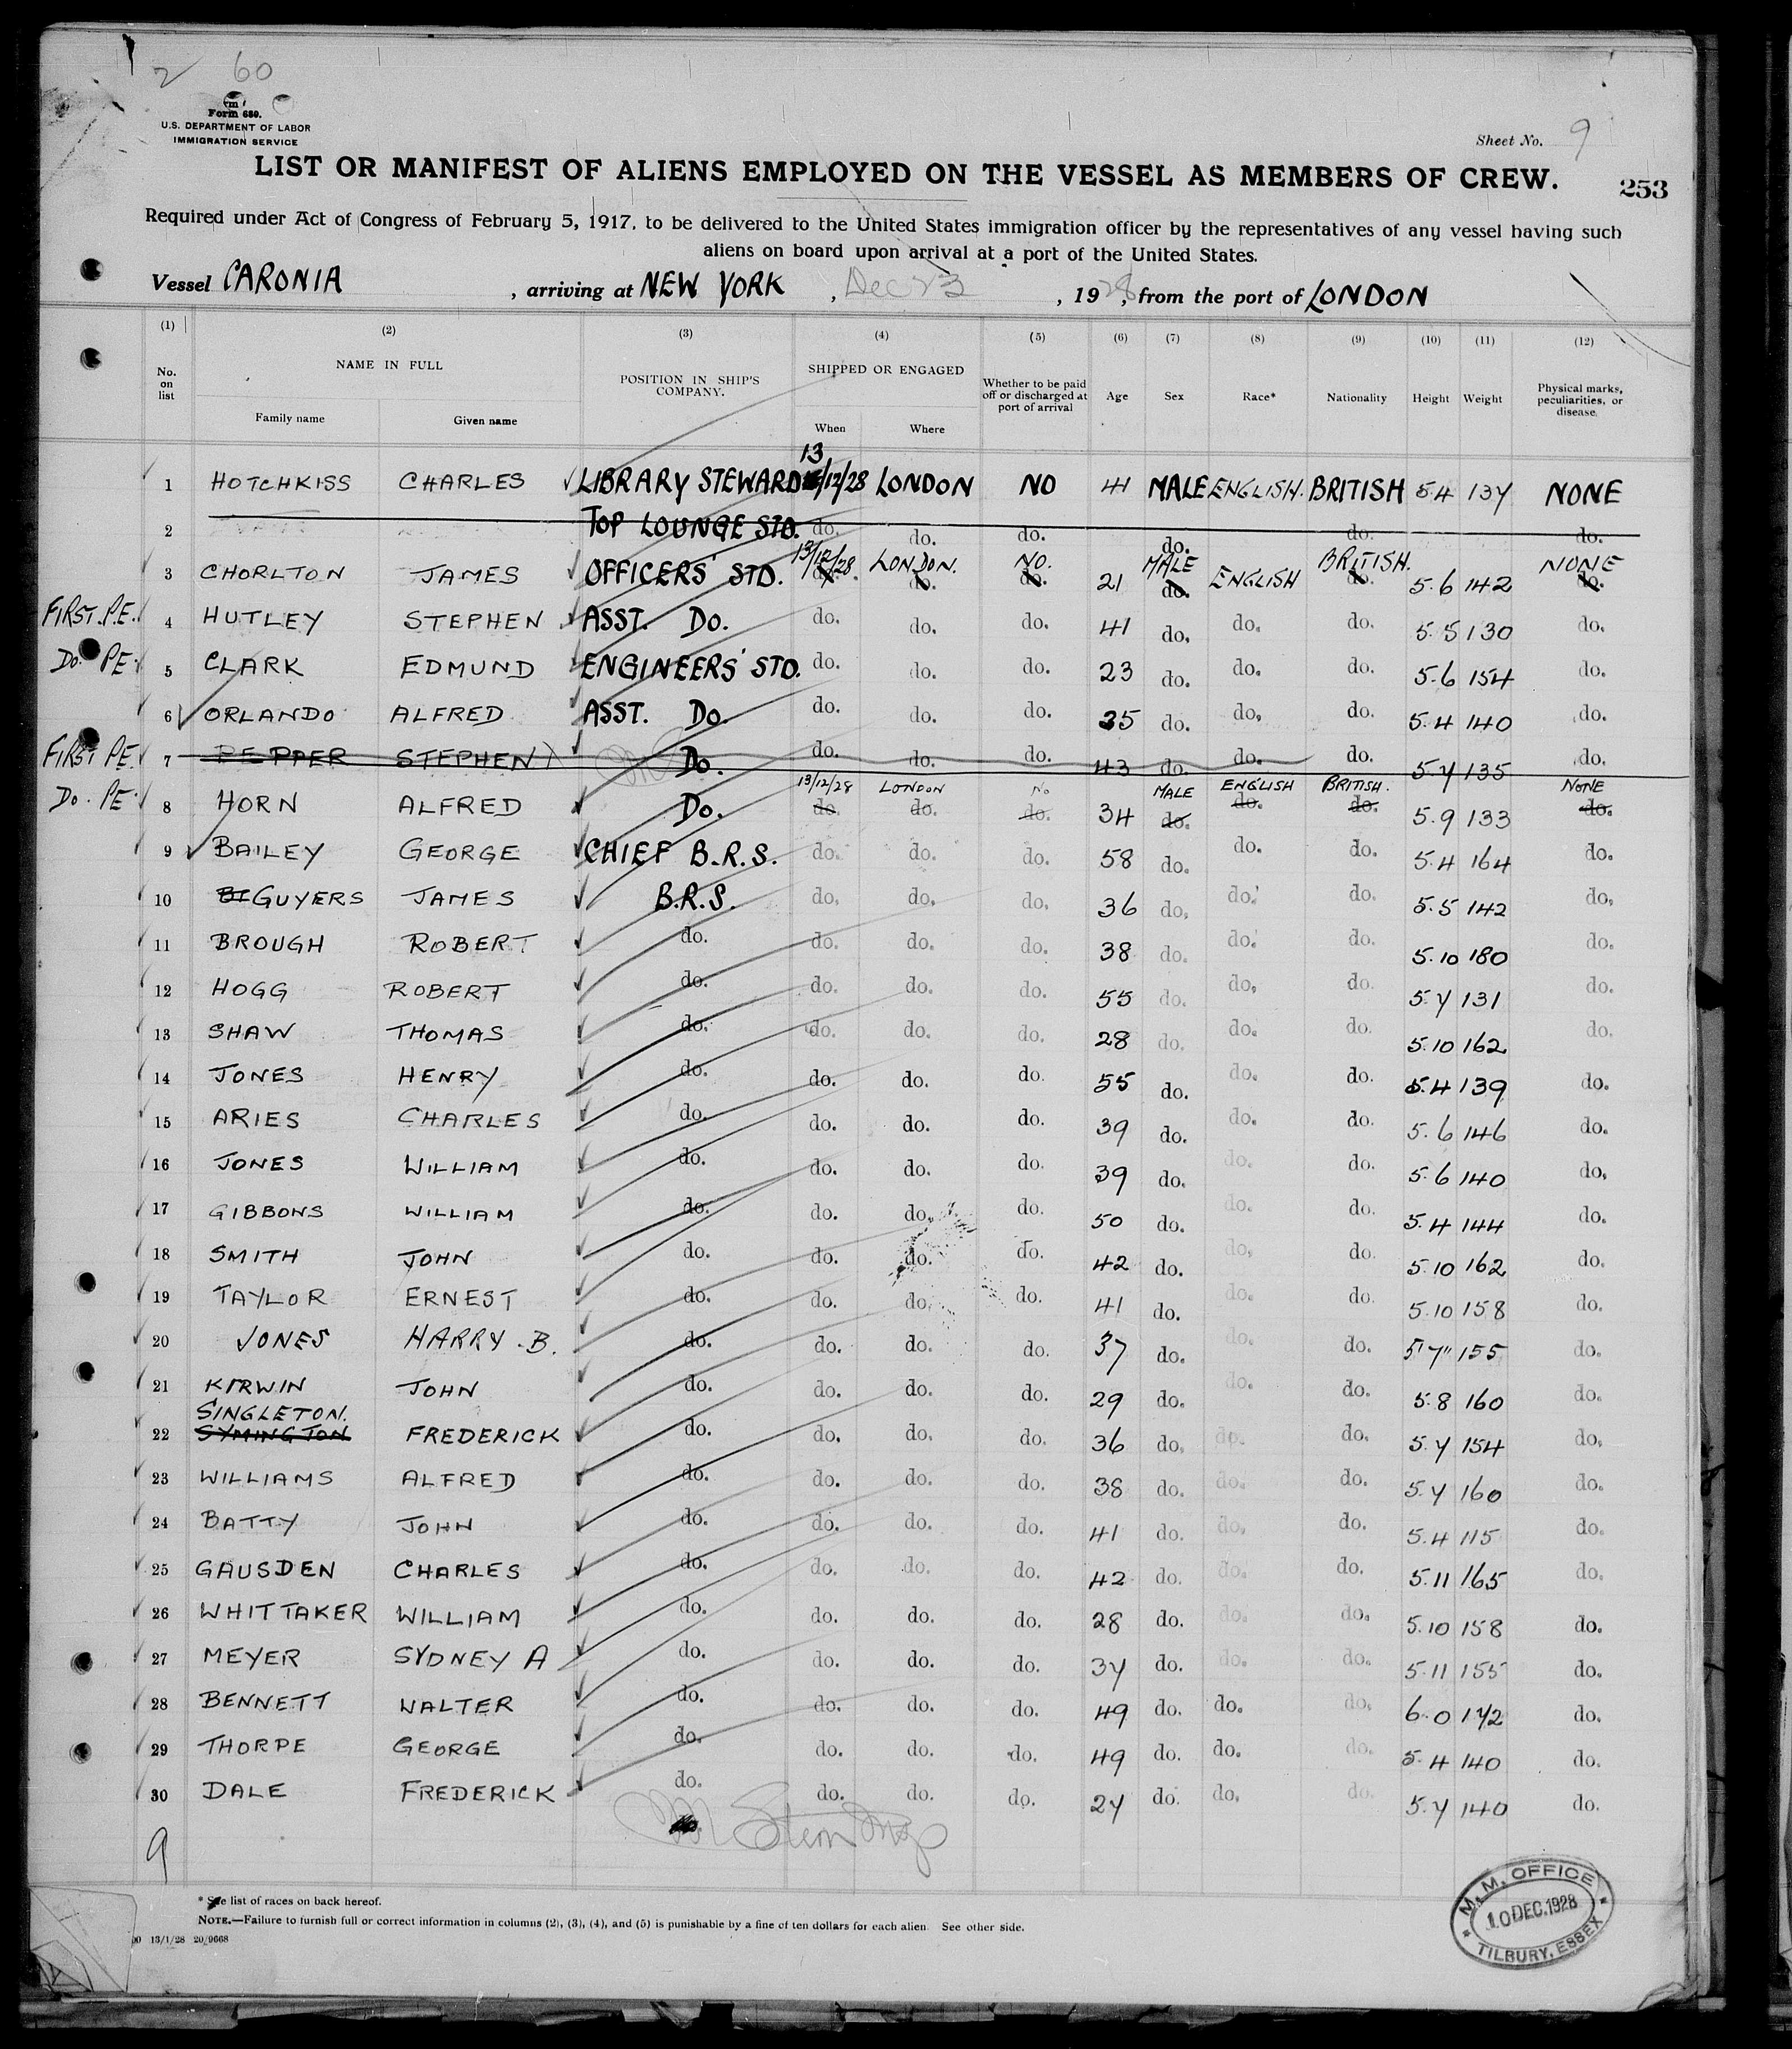 2 60
Form 680.
U.S. DEPARTMENT OF LABOR
IMMIGRATION SERVICE
Sheet No. 9
LIST OR MANIFEST OF ALIENS EMPLOYED ON THE VESSEL AS MEMBERS OF CREW.
253
Required under Act of Congress of February 5, 1917, to be delivered to the United States immigration officer by the representatives of any vessel having such
aliens on board upon arrival at a port of the United States.
Vessel CARONIA, arriving at NEW YORK, Dec 23, 1928, from the port of LONDON
(1) (2) (3) (4) (5) (6) (7) (8) (9) (10) (11) (12)
No. on list NAME IN FULL Family name Given name POSITION IN SHIP'S COMPANY. SHIPPED OR ENGAGED When Where Whether to be paid off or discharged at port of arrival Age Sex Race* Nationality Height Weight Physical marks, peculiarities, or disease
1 HOTCHKISS CHARLES LIBRARY STEWARD 13/12/28 LONDON NO 41 MALE ENGLISH. BRITISH 5.4 137 NONE
2 TOP LOUNGE STD. do. do. do. do. do. do.
3 CHORLTON JAMES OFFICERS' STD. 13/12/28 do. LONDON. do. NO. do. 21 MALE do. ENGLISH BRITISH. do. 5.6 142 NONE do.
FIRST.P.E. 4 HUTLEY STEPHEN ASST. DO. do. do. do. 41 do. do. do. 5.5 130 do.
DO. PE. 5 CLARK EDMUND ENGINEERS' STD. do. do. do. 23 do. do. do. 5.6 154 do.
6 ORLANDO ALFRED ASST. DO. do. do. do. 35 do. do. do. 5.4 140 do.
FIRST PE. 7 PEPPER STEPHEN DO. do. do. do. 43 do. do. do. 5.7 135 do.
DO. PE. 8 HORN ALFRED DO. 13/12/28 do. LONDON do. NO do. 34 MALE do. ENGLISH do. BRITISH. do. 5.9 133 NONE do.
9 BAILEY GEORGE CHIEF B.R.S. do. do. do. 58 do. do. do. 5.4 164 do.
10 GUYERS JAMES B.R.S. do. do. do. 36 do. do. do. 5.5 142 do.
11 BROUGH ROBERT do. do. do. do. 38 do. do. do. 5.10 180 do.
12 HOGG ROBERT do. do. do. do. 55 do. do. do. 5.7 131 do.
13 SHAW THOMAS do. do. do. do. 28 do. do. do. 5.10 162 do.
14 JONES HENRY do. do. do. do. 55 do. do. do. 5.4 139 do.
15 ARIES CHARLES do. do. do. do. 39 do. do. do. 5.6 146 do.
16 JONES WILLIAM do. do. do. do. 39 do. do. do. 5.6 140 do.
17 GIBBONS WILLIAM do. do. do. do. 50 do. do. do. 5.4 144 do.
18 SMITH JOHN do. do. do. do. 42 do. do. do. 5.10 162 do.
19 TAYLOR ERNEST do. do. do. do. 41 do. do. do. 5.10 158 do.
20 JONES HARRY.B. do. do. do. do. 37 do. do. do. 5'7" 155 do.
21 KIRWIN JOHN do. do. do. do. 29 do. do. do. 5.8 160 do.
SINGLETON.
22 SYMINGTON FREDERICK do. do. do. do. 36 do. do. do. 5.7 154 do.
23 WILLIAMS ALFRED do. do. do. do. 38 do. do. do. 5.7 160 do.
24 BATTY JOHN do. do. do. do. 41 do. do. do. 5.4 115 do.
25 GAUSDEN CHARLES do. do. do. do. 42 do. do. do. 5.11 165 do.
26 WHITTAKER WILLIAM do. do. do. do. 28 do. do. do. 5.10 158 do.
27 MEYER SYDNEY A do. do. do. do. 37 do. do. do. 5.11 155 do.
28 BENNETT WALTER do. do. do. do. 49 do. do. do. 6.0 172 do.
29 THORPE GEORGE do. do. do. do. 49 do. do. do. 5.4 140 do.
30 DALE FREDERICK do. do. do. do. 27 do. do. do. 5.7 140 do.
9
* See list of races on back hereof.
NOTE.—Failure to furnish full or correct information in columns (2), (3), (4), and (5) is punishable by a fine of ten dollars for each alien. See other side.
13/1/28 20/9668
M. M. OFFICE
10 DEC. 1928
TILBURY, ESSEX